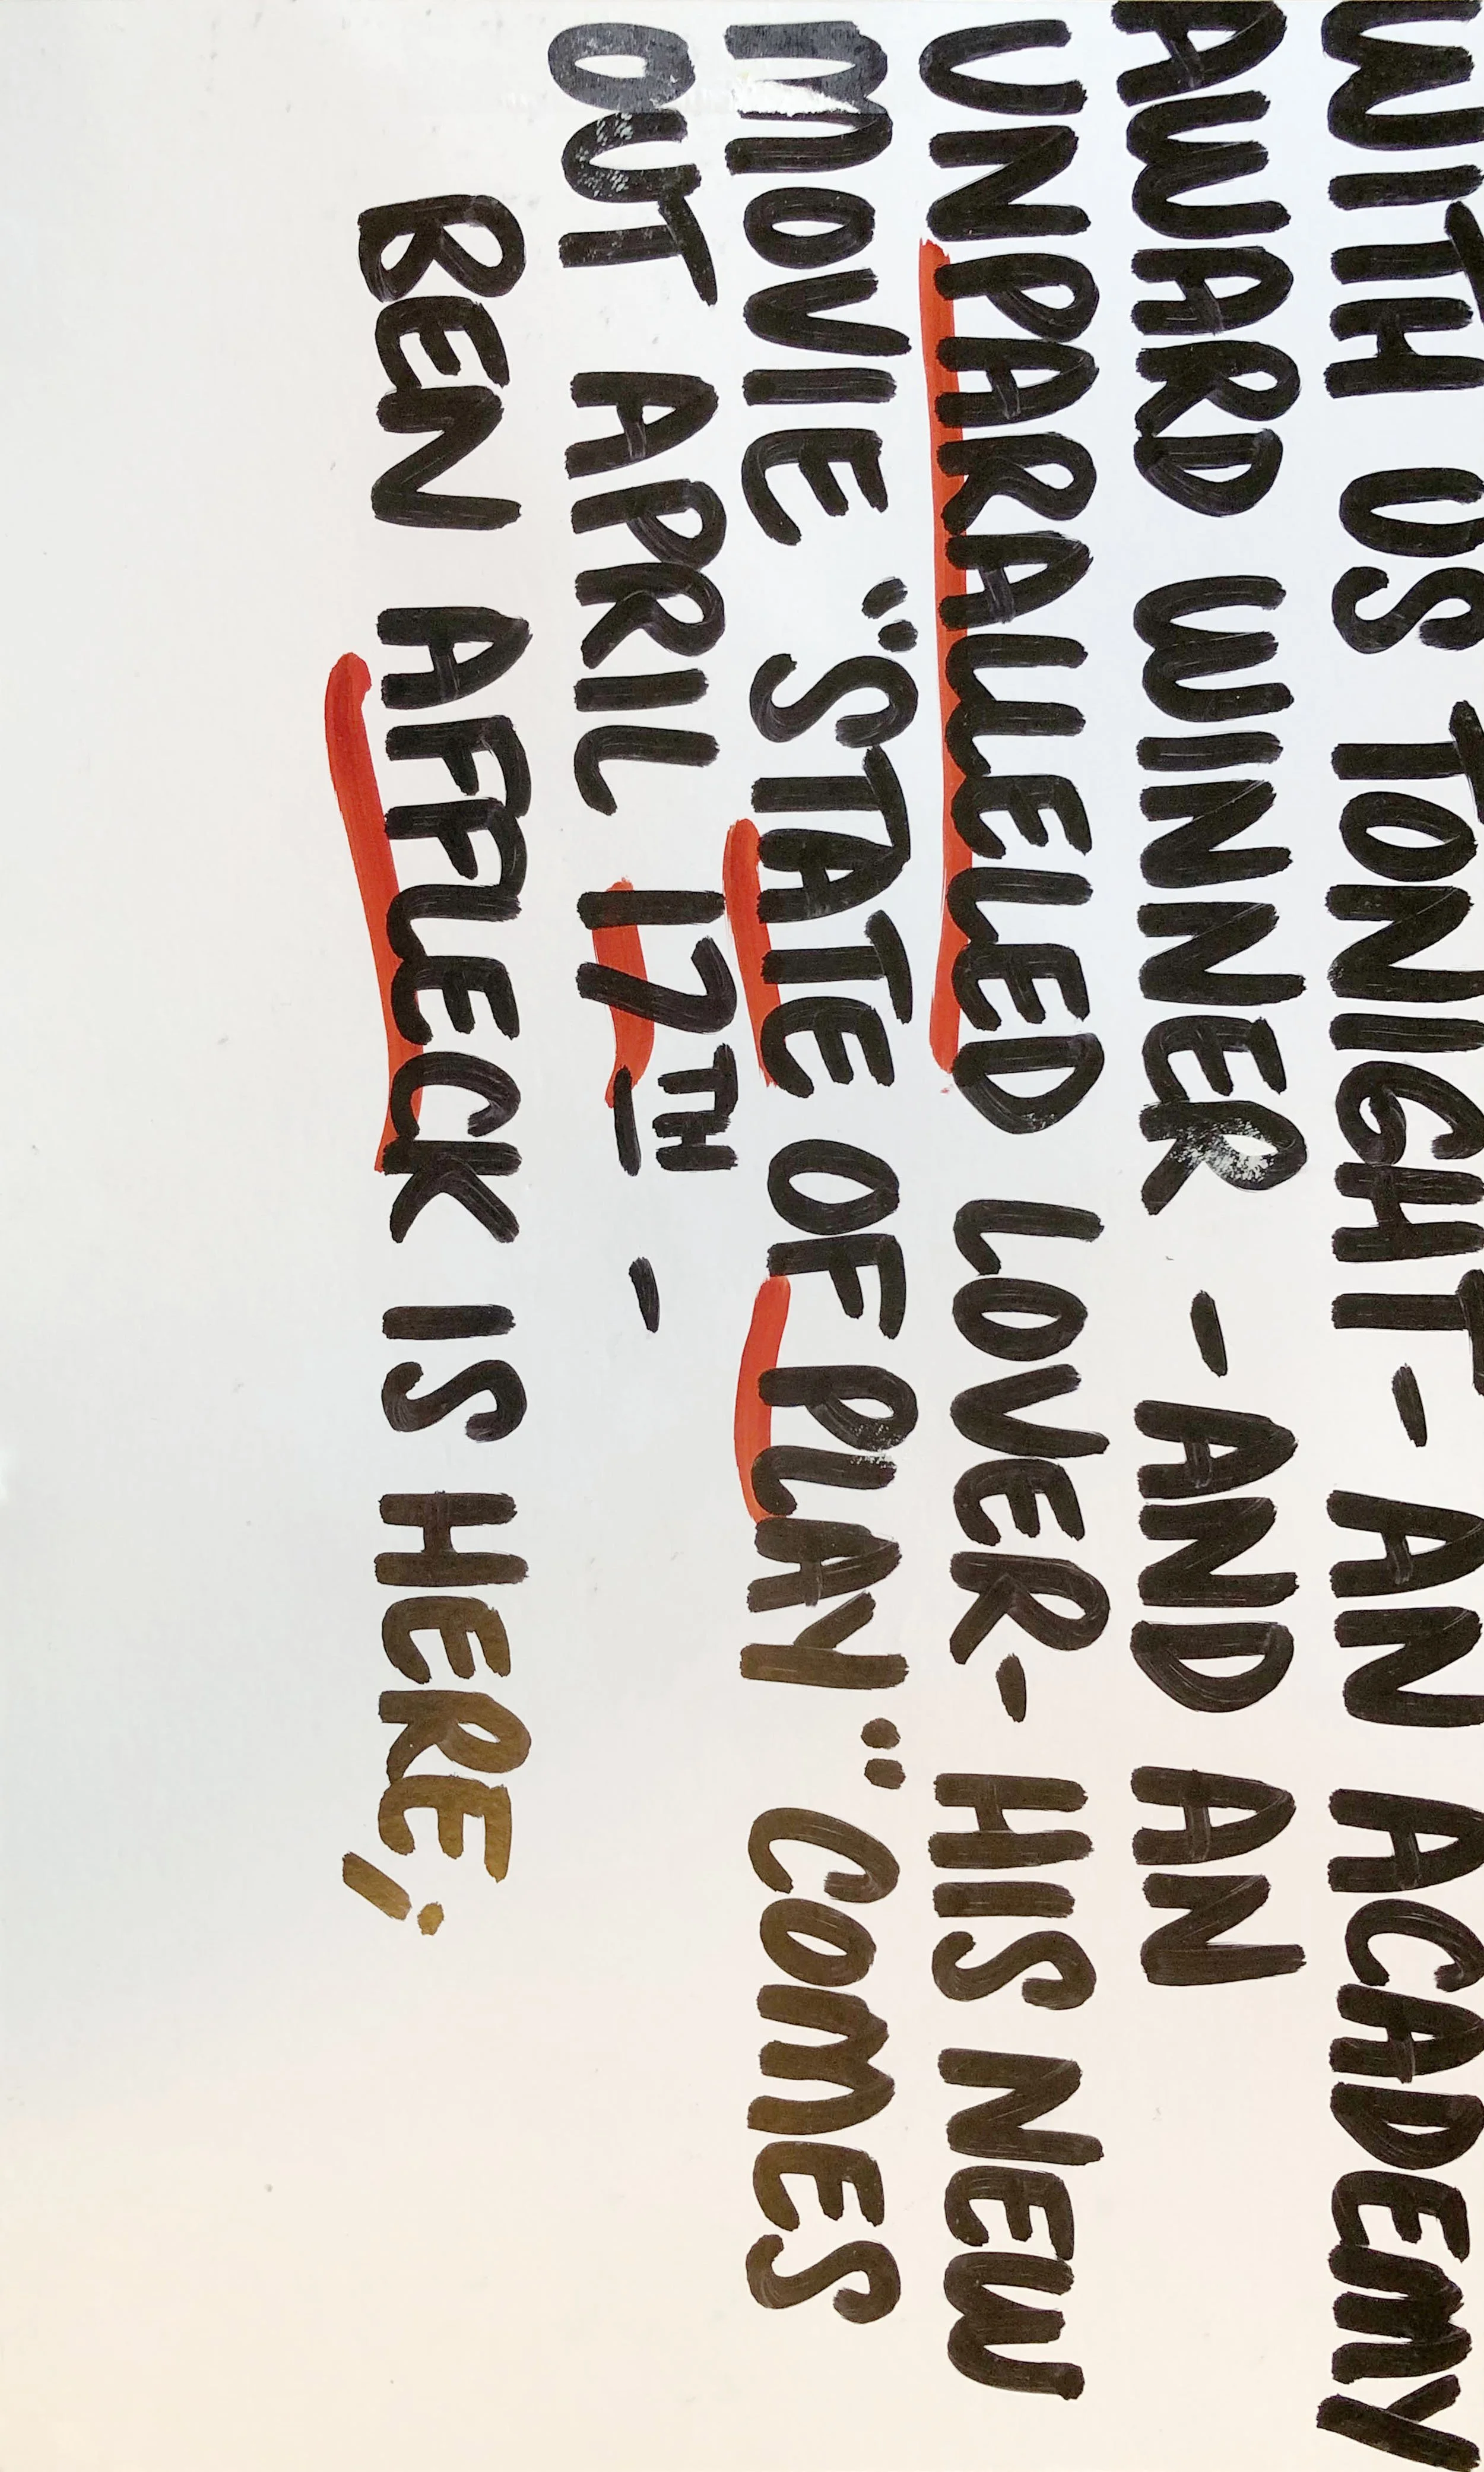 WITH US TONIGHT - AN ACADEMY
AWARD WINNER - AND AN
UNPARALLELED LOVER - HIS NEW
MOVIE "STATE OF PLAY" COMES
OUT APRIL 17TH - -
BEN AFFLECK IS HERE;